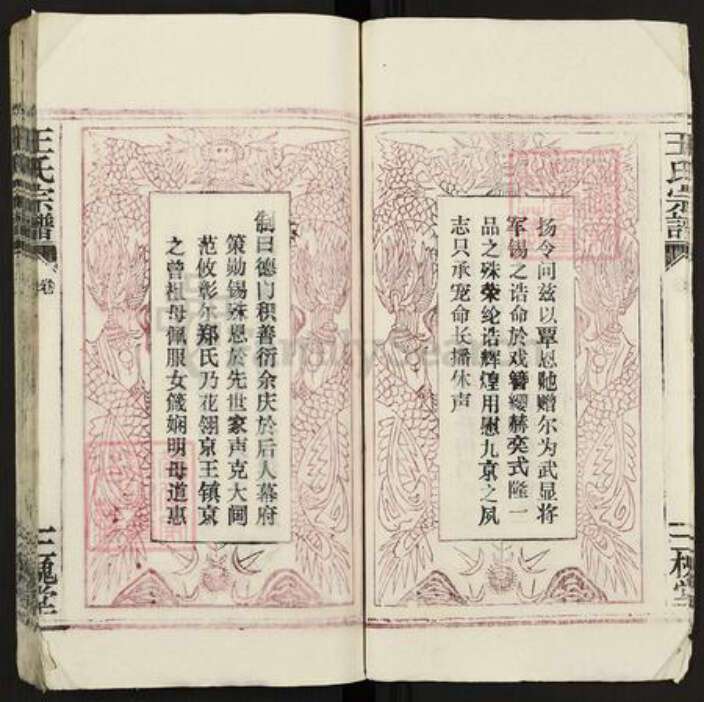 王氏宗谱
三槐堂
扬令问兹以覃恩貤赠尔为武显将
军锡之诰命於戏簪缨赫奕式隆一
品之殊荣纶诰辉煌用慰九京之夙
志只承宠命长播休声
制曰德门积善衍余庆於后人幕府
策勋锡殊恩於先世家声克大阃
范攸彰尔郑氏乃花翎京王镇京
之曾祖母佩服女箴娴明母道惠
王氏宗谱
卷
三槐堂